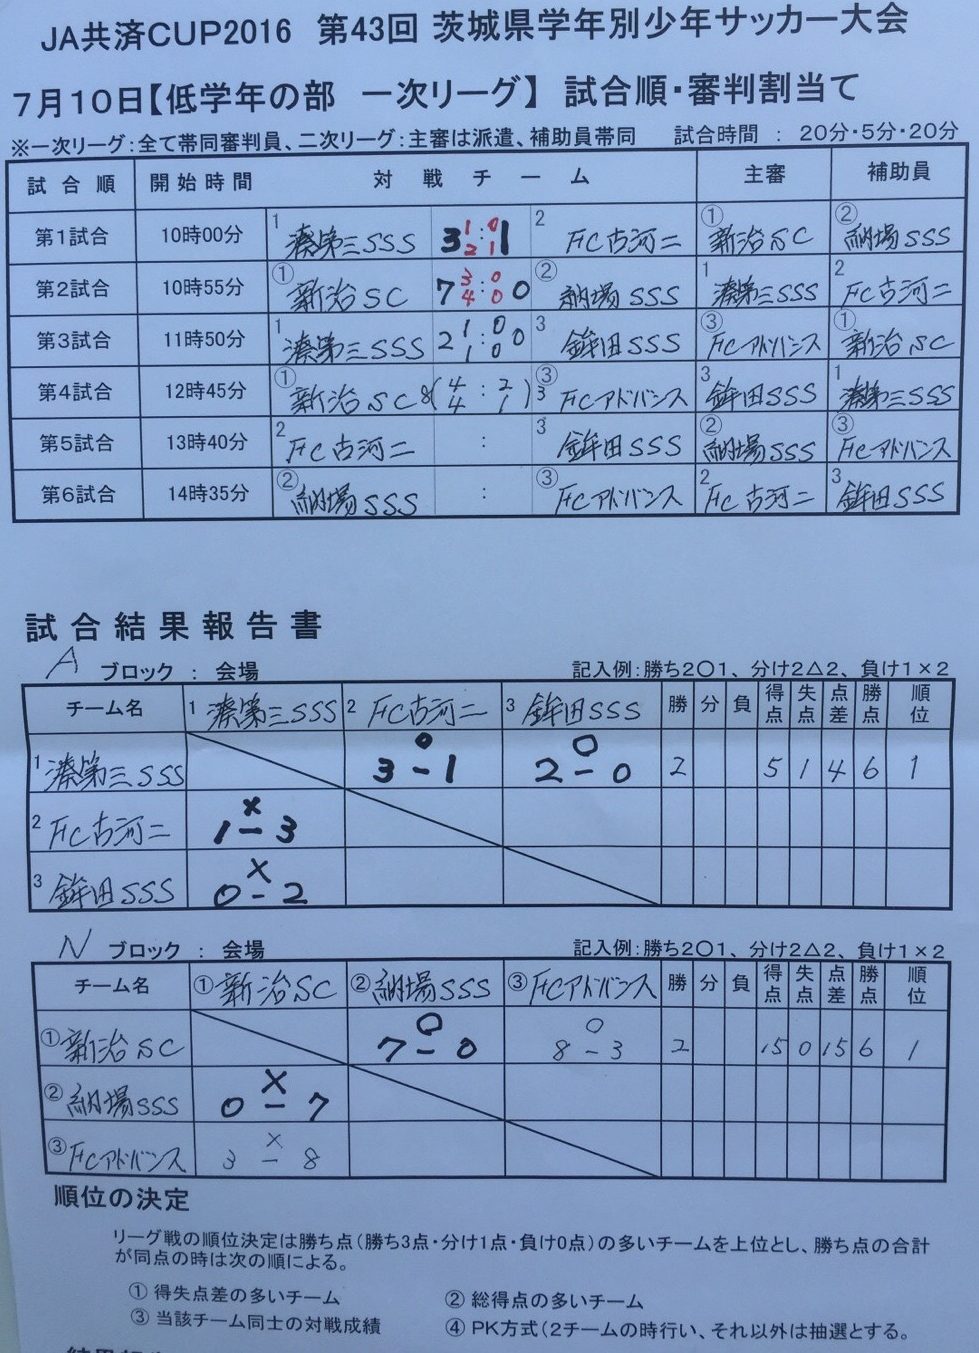 JA共済CUP2016 第43回 茨城県学年別少年サッカー大会
7月10日【低学年の部 一次リーグ】 試合順・審判割当て
※一次リーグ:全て帯同審判員、二次リーグ:主審は派遣、補助員帯同 試合時間 : 20分・5分・20分
試合順 開始時間 対戦チーム 主審 補助員
第1試合 10時00分 1 湊第三SSS 3 1:0 2 1 1 2 FC古河二 ① 新治SC ② 納場SSS
第2試合 10時55分 ① 新治SC 7 3:0 4 0 0 ② 納場SSS 1 湊第三SSS 2 FC古河二
第3試合 11時50分 1 湊第三SSS 2 1:0 1 0 0 3 鉾田SSS ③ FCアドバンス ① 新治SC
第4試合 12時45分 ① 新治SC 8(4:2 4 1)3 ③ FCアドバンス 3 鉾田SSS 1 湊第三SSS
第5試合 13時40分 2 FC古河二 : 3 鉾田SSS ② 納場SSS ③ FCアドバンス
第6試合 14時35分 ② 納場SSS : ③ FCアドバンス 2 FC古河二 3 鉾田SSS
試合結果報告書
A ブロック : 会場 記入例:勝ち2○1、分け2△2、負け1×2
チーム名 1 湊第三SSS 2 FC古河二 3 鉾田SSS 勝 分 負 得点 失点 点差 勝点 順位
1 湊第三SSS ○ 3-1 ○ 2-0 2 5 1 4 6 1
2 FC古河二 × 1-3
3 鉾田SSS × 0-2
N ブロック : 会場 記入例:勝ち2○1、分け2△2、負け1×2
チーム名 ①新治SC ②納場SSS ③FCアドバンス 勝 分 負 得点 失点 点差 勝点 順位
①新治SC ○ 7-0 ○ 8-3 2 15 0 15 6 1
②納場SSS × 0-7
③FCアドバンス × 3-8
順位の決定
リーグ戦の順位決定は勝ち点(勝ち3点・分け1点・負け0点)の多いチームを上位とし、勝ち点の合計
が同点の時は次の順による。
① 得失点差の多いチーム ② 総得点の多いチーム
③ 当該チーム同士の対戦成績 ④ PK方式(2チームの時行い、それ以外は抽選とする。